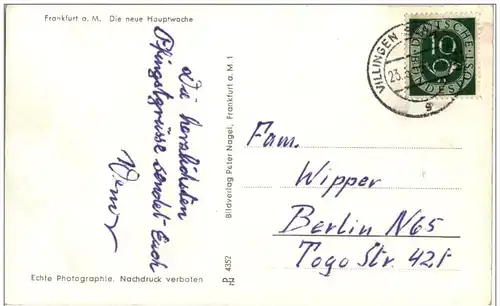 Frankfurt a. M. Die neue Hauptwache
Die herzlichsten
Pfingstgrüsse sendet Euch
Echte Photographie. Nachdruck verboten
Bildverlag Peter Nagel, Frankfurt a. M. 1
4352
VILLINGEN
23.
g
DEUTSCHE
BUNDESPOST
10
Fam.
Wipper
Berlin N65
Togo Str. 42f